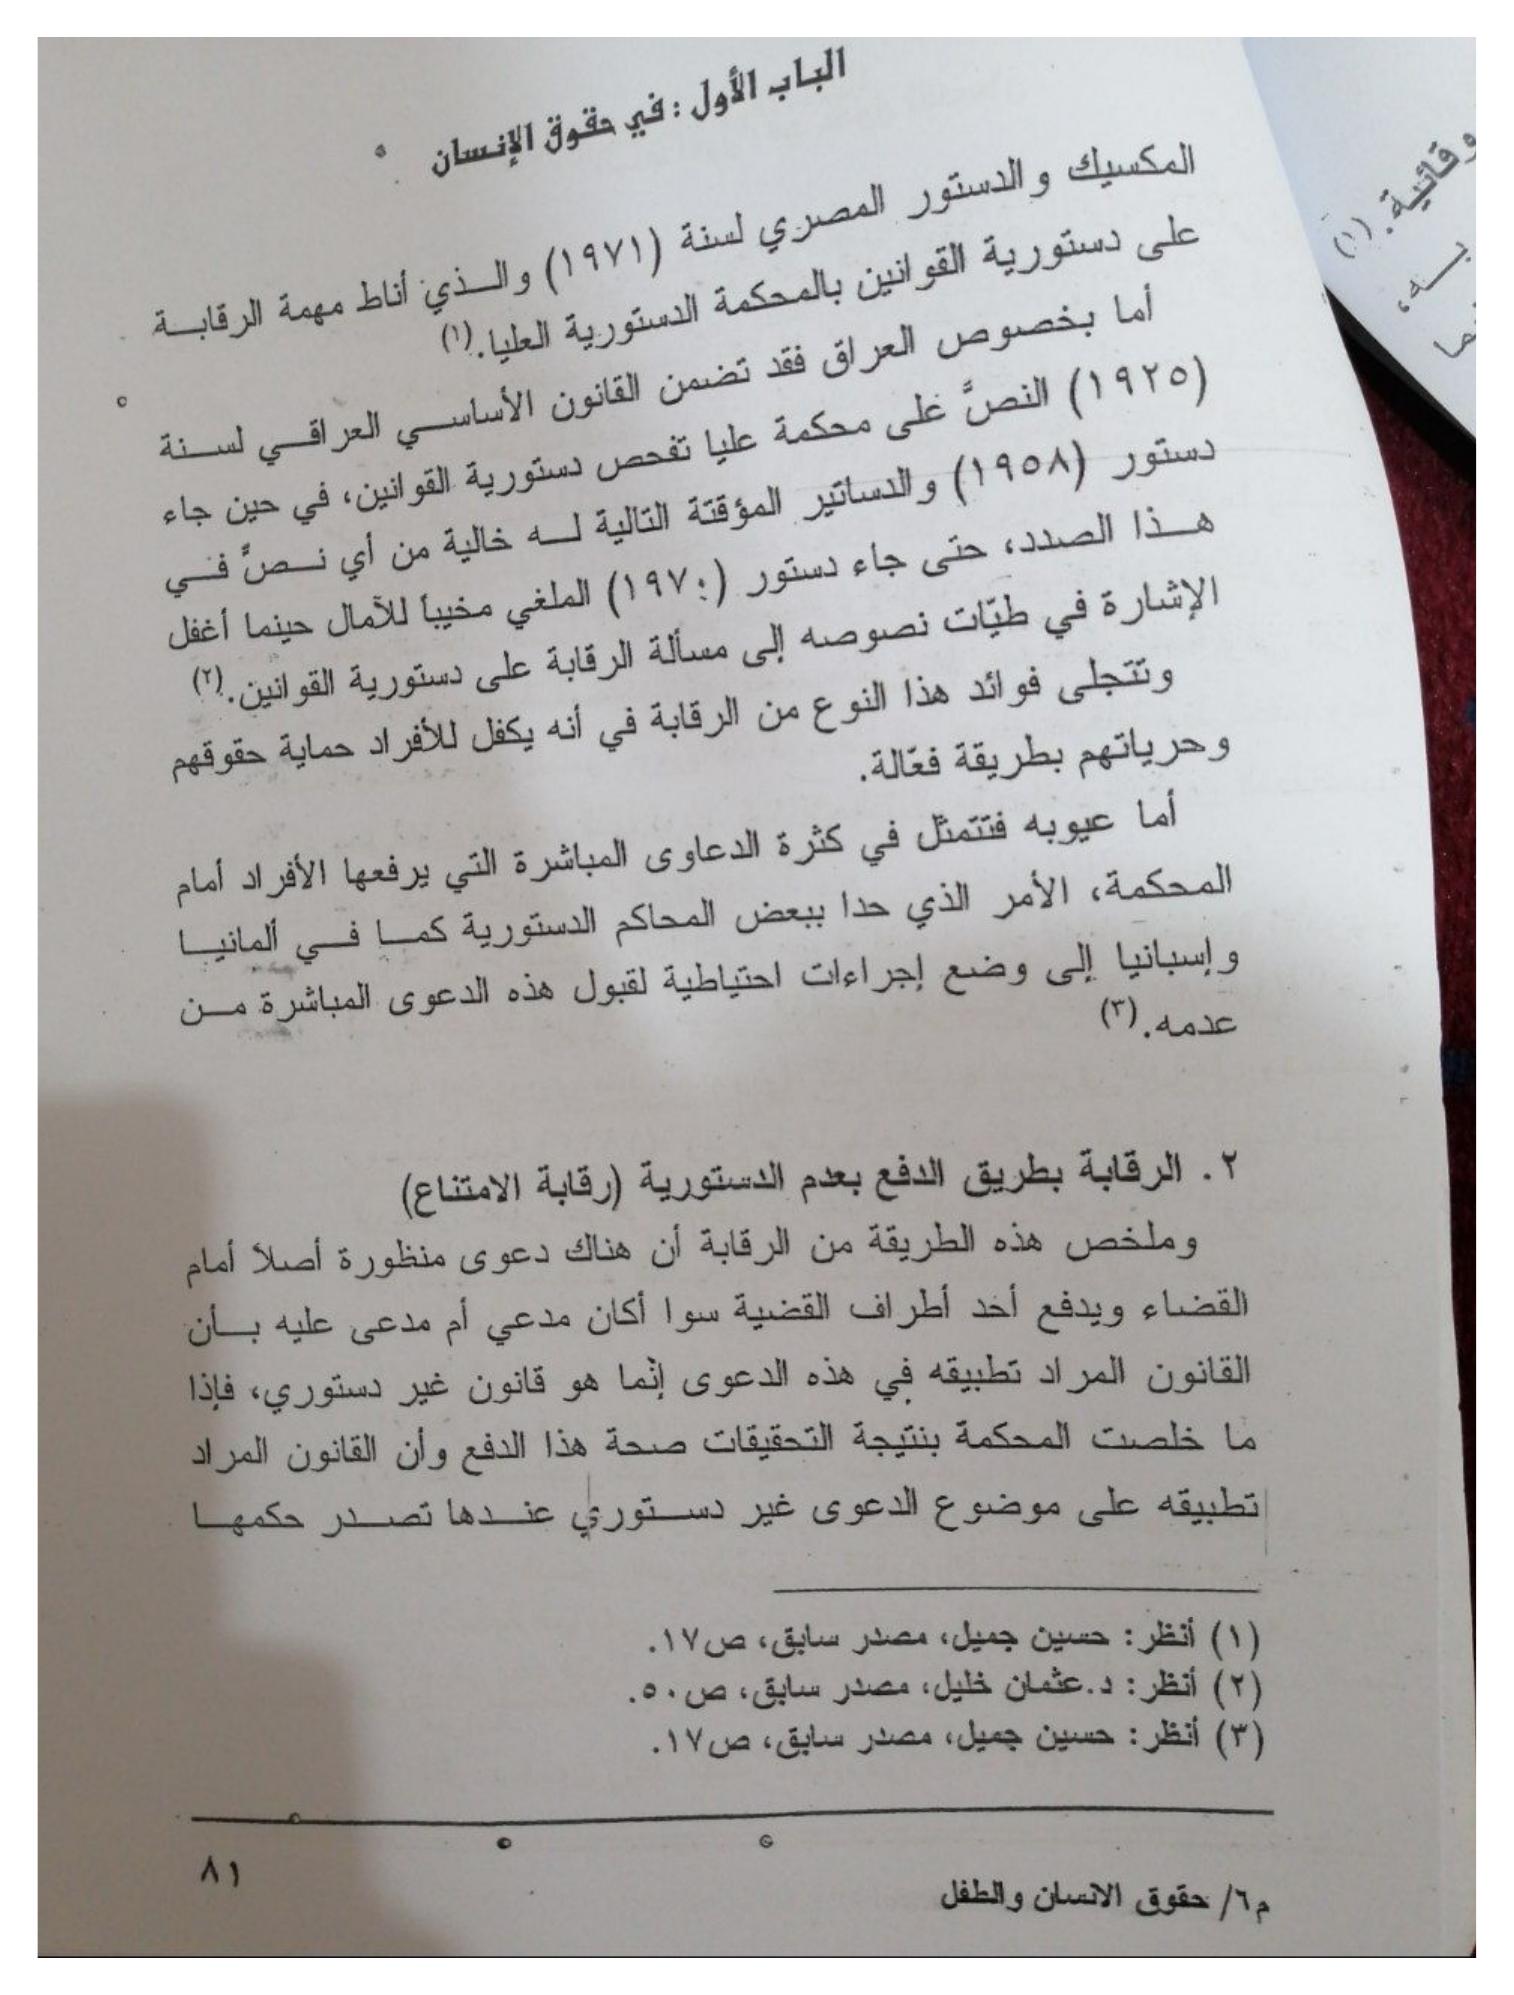 الباب الأول: في حقوق الإنسان
المكسيك والدستور المصري لسنة (١٩٧١) والذي أناط مهمة الرقابة
على دستورية القوانين بالمحكمة الدستورية العليا.(١)
أما بخصوص العراق فقد تضمن القانون الأساسي العراقي لسنة
(١٩٢٥) النصَّ على محكمة عليا تفحص دستورية القوانين، في حين جاء
دستور (١٩٥٨) والدساتير المؤقتة التالية له خالية من أي نصٍّ في
هذا الصدد، حتى جاء دستور (١٩٧٠) الملغي مخيباً للآمال حينما أغفل
الإشارة في طيّات نصوصه إلى مسألة الرقابة على دستورية القوانين.(٢)
وتتجلى فوائد هذا النوع من الرقابة في أنه يكفل للأفراد حماية حقوقهم
وحرياتهم بطريقة فعّالة.
أما عيوبه فتتمثل في كثرة الدعاوى المباشرة التي يرفعها الأفراد أمام
المحكمة، الأمر الذي حدا ببعض المحاكم الدستورية كما في ألمانيا
وإسبانيا إلى وضع إجراءات احتياطية لقبول هذه الدعوى المباشرة من
عدمه.(٣)
٢. الرقابة بطريق الدفع بعدم الدستورية (رقابة الامتناع)
وملخص هذه الطريقة من الرقابة أن هناك دعوى منظورة أصلاً أمام
القضاء ويدفع أحد أطراف القضية سوا أكان مدعي أم مدعى عليه بأن
القانون المراد تطبيقه في هذه الدعوى إنّما هو قانون غير دستوري، فإذا
ما خلصت المحكمة بنتيجة التحقيقات صحة هذا الدفع وأن القانون المراد
تطبيقه على موضوع الدعوى غير دستوري عندها تصدر حكمها
(١) أنظر: حسين جميل، مصدر سابق، ص١٧.
(٢) أنظر: د.عثمان خليل، مصدر سابق، ص٥٠.
(٣) أنظر: حسين جميل، مصدر سابق، ص١٧.
٨١
م٦/ حقوق الانسان والطفل
وقائية.(١)